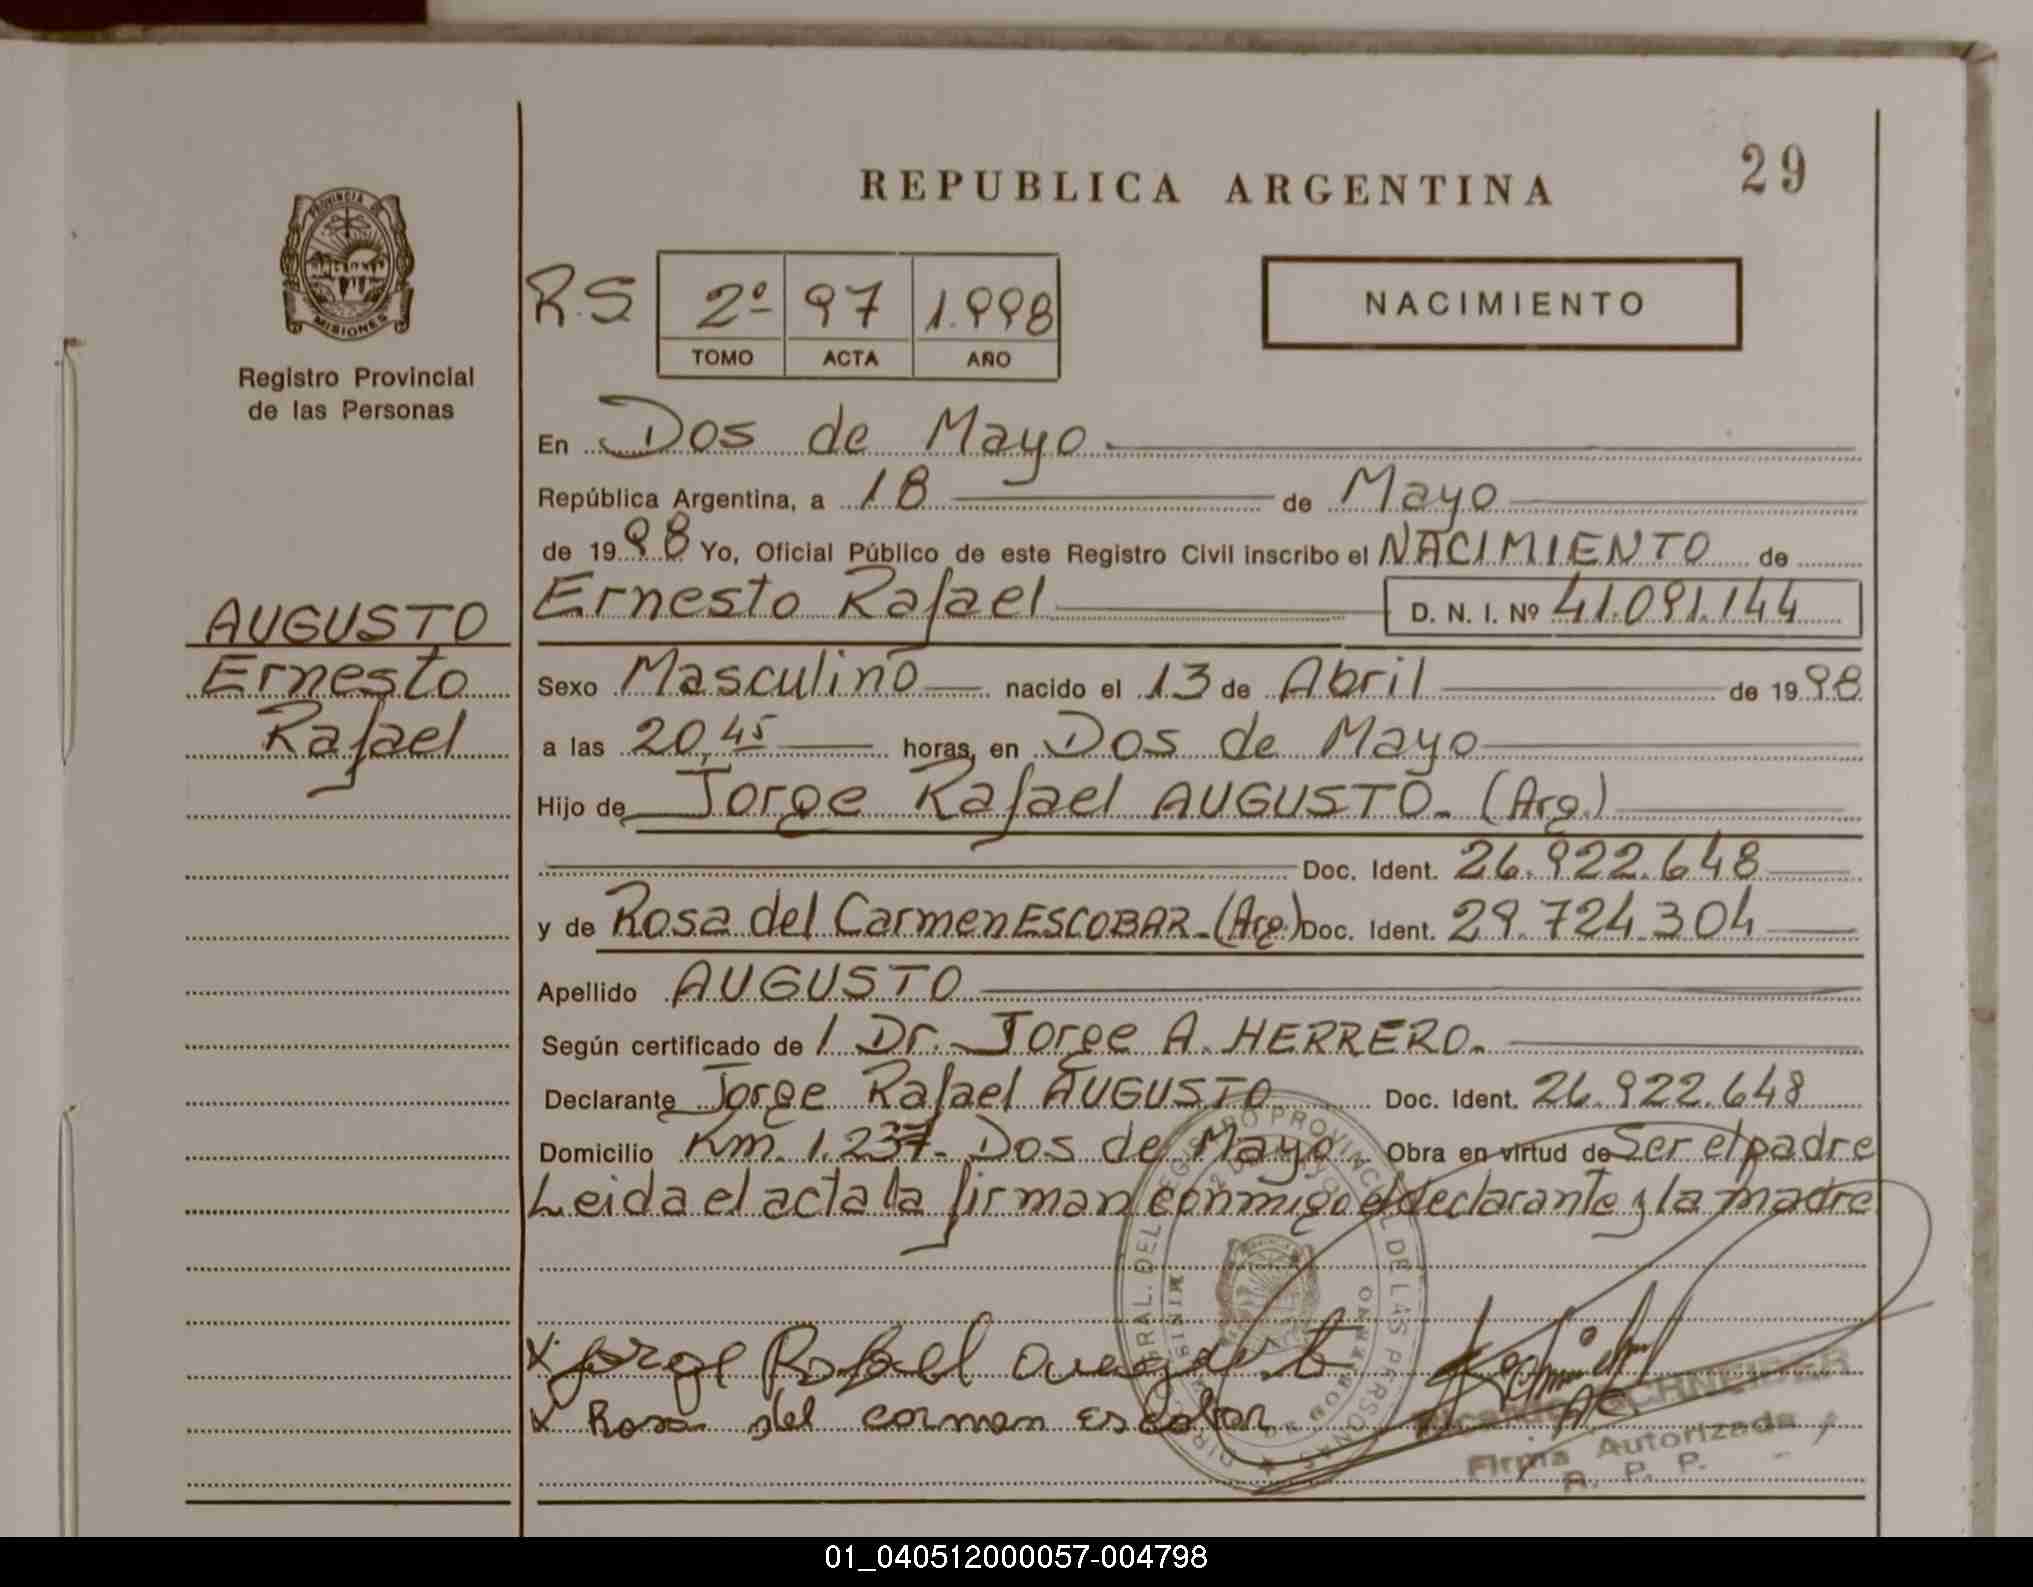 REPUBLICA ARGENTINA
29
PROVINCIA DE
MISIONES
Registro Provincial
de las Personas
R.S 2º 97 1.998
TOMO ACTA AÑO
NACIMIENTO
En Dos de Mayo
República Argentina, a 18 de Mayo
de 1998 Yo, Oficial Público de este Registro Civil inscribo el NACIMIENTO de
AUGUSTO
Ernesto
Rafael
Ernesto Rafael D. N. I. Nº 41.091.144
Sexo Masculino nacido el 13 de Abril de 1998
a las 20,45 horas, en Dos de Mayo
Hijo de Jorge Rafael AUGUSTO. (Arg.)
Doc. Ident. 26.922.648
y de Rosa del Carmen ESCOBAR.(Arg.) Doc. Ident. 29.724.304
Apellido AUGUSTO
Según certificado de / Dr. Jorge A. HERRERO.
Declarante Jorge Rafael AUGUSTO Doc. Ident. 26.922.648
Domicilio Km. 1.237- Dos de Mayo Obra en virtud de Ser el padre
Leida el acta la firman conmigo el declarante y la madre
x Jorge Rafael
x Rosa del carmen escobar
SCHNEIDER
Firma Autorizada
R. P. P.
01_040512000057-004798